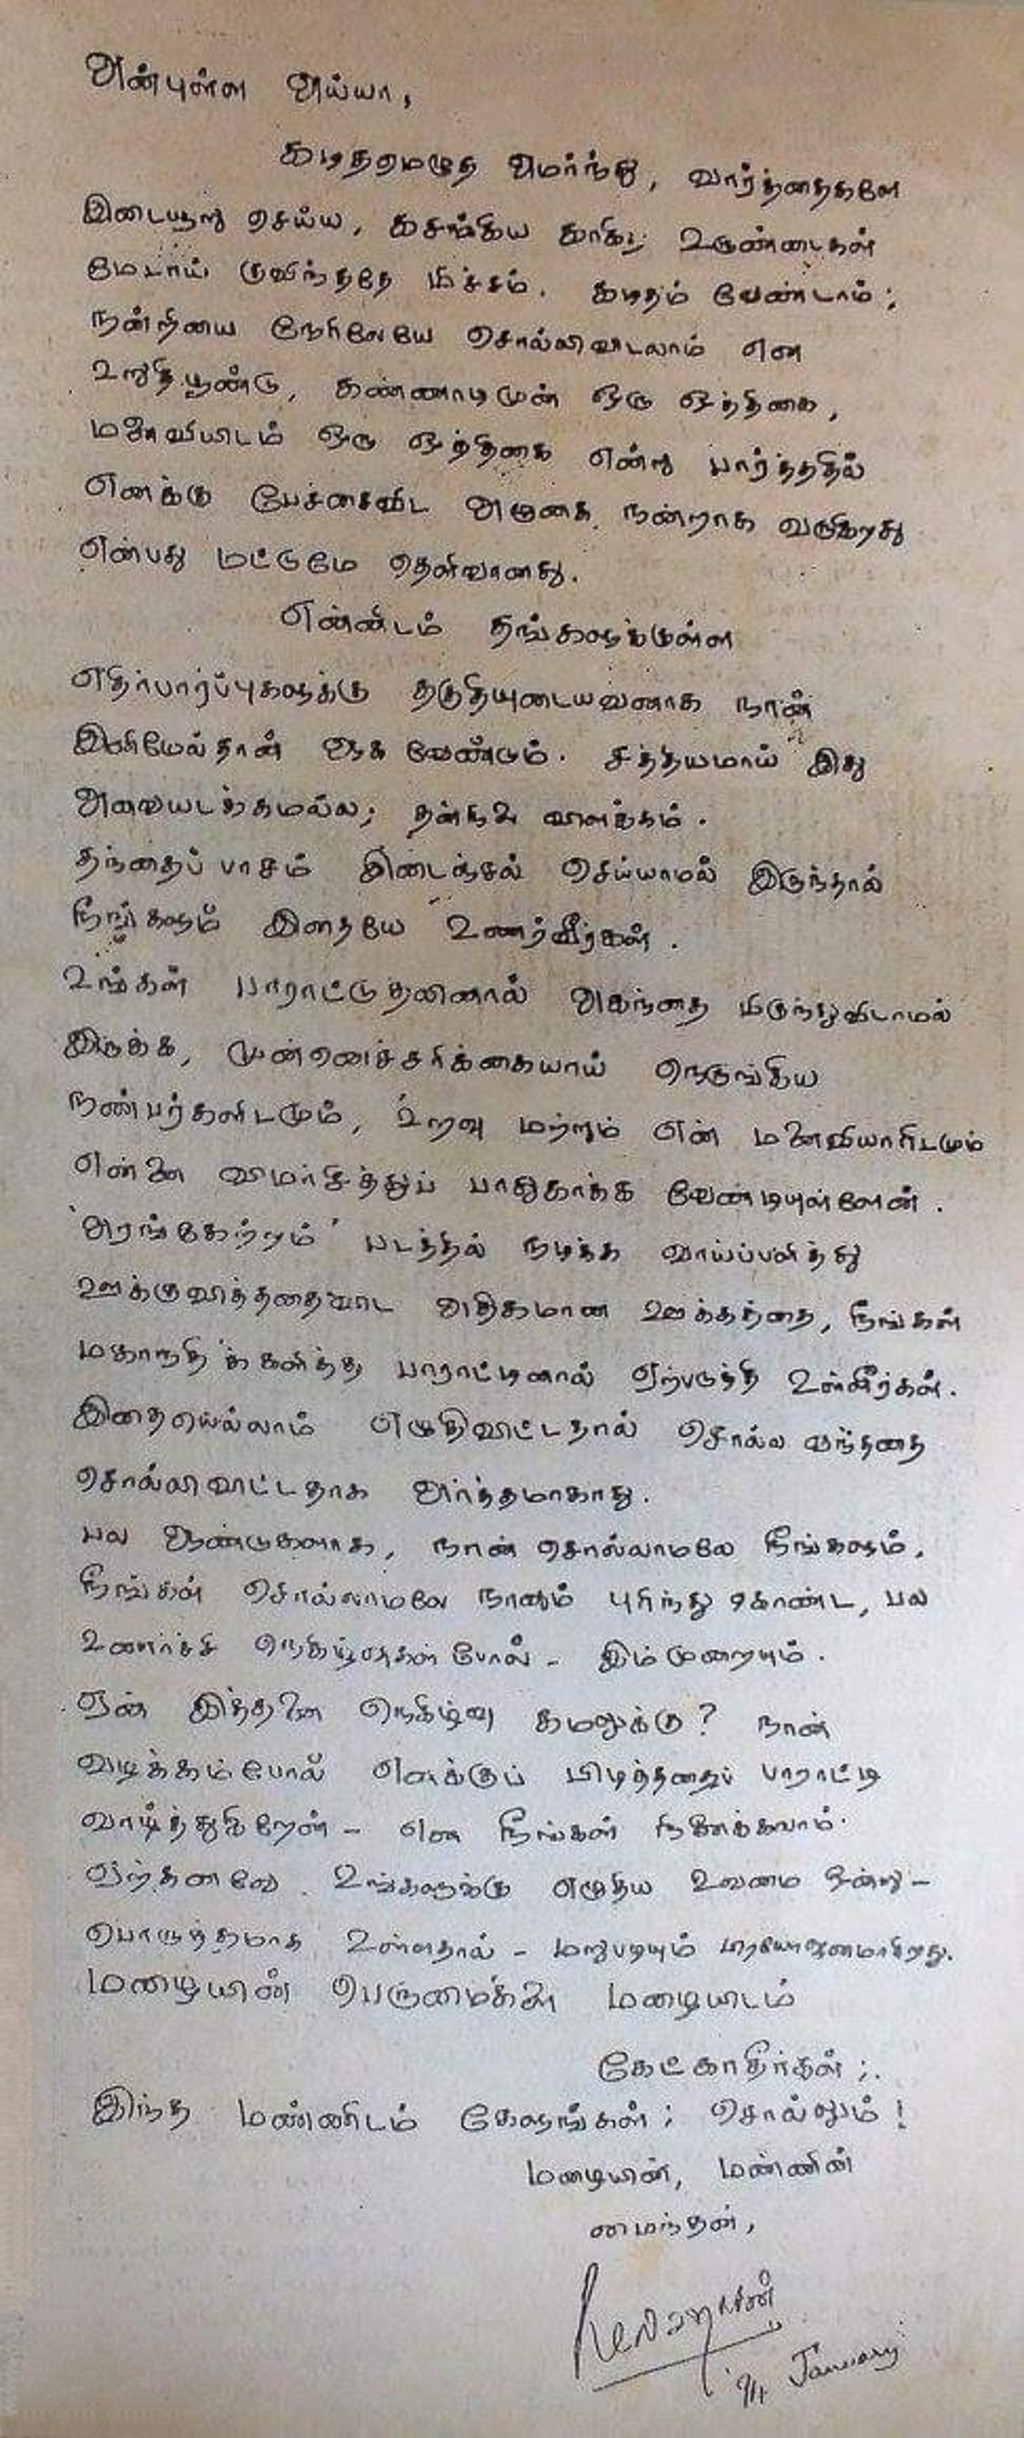 அன்புள்ள அய்யா,
கடிதமெழுத அமர்ந்து, வார்த்தைகளே
இடையூறு செய்ய, கசங்கிய காகித உருண்டைகள்
மேடாய் குவிந்ததே மிச்சம். கடிதம் வேண்டாம்;
நன்றியை நேரிலேயே சொல்லிவிடலாம் என
உறுதி பூண்டு, கண்ணாடிமுன் ஒரு ஒத்திகை,
மனைவியிடம் ஒரு ஒத்திகை என்று பார்த்ததில்
எனக்கு பேச்சைவிட அழுகை நன்றாக வருகிறது
என்பது மட்டுமே தெளிவானது.
என்னிடம் தங்களுக்குள்ள
எதிர்பார்ப்புகளுக்கு தகுதியுடையவனாக நான்
இனிமேல்தான் ஆக வேண்டும். சத்தியமாய் இது
அவையடக்கமல்ல; தன்நிலை விளக்கம்.
தந்தைப் பாசம் இடைஞ்சல் செய்யாமல் இருந்தால்
நீங்களும் இதையே உணர்வீர்கள்.
உங்கள் பாராட்டுதலினால் அகந்தை மிகுந்துவிடாமல்
இருக்க, முன்னெச்சரிக்கையாய் நெருங்கிய
நண்பர்களிடமும், உறவு மற்றும் என் மனைவியாரிடமும்
என்னை விமர்சித்துப் பாதுகாக்க வேண்டியுள்ளேன்.
'அரங்கேற்றம்' படத்தில் நடிக்க வாய்ப்பளித்து
ஊக்குவித்ததைவிட அதிகமான ஊக்கத்தை, நீங்கள்
மகாநதி'க்களித்த பாராட்டினால் ஏற்படுத்தி உள்ளீர்கள்.
இதையெல்லாம் எழுதிவிட்டதால் சொல்ல வந்ததை
சொல்லிவிட்டதாக அர்த்தமாகாது.
பல ஆண்டுகளாக, நான் சொல்லாமலே நீங்களும்,
நீங்கள் சொல்லாமலே நானும் புரிந்து கொண்ட, பல
உணர்ச்சி நெகிழ்வுகள் போல் - இம்முறையும்.
ஏன் இத்தனை நெகிழ்வு கமலுக்கு? நான்
வழக்கம்போல் எனக்குப் பிடித்ததைப் பாராட்டி
வாழ்த்துகிறேன் - என நீங்கள் நினைக்கலாம்.
ஏற்கனவே உங்களுக்கு எழுதிய உவமை ஒன்று -
பொருத்தமாக உள்ளதால் - மறுபடியும் பிரயோஜனமாகிறது.
மழையின் பெருமைகளை மழையிடம்
கேட்காதீர்கள்;
இந்த மண்ணிடம் கேளுங்கள்; சொல்லும்!
மழையின், மண்ணின்
மைந்தன்,
January